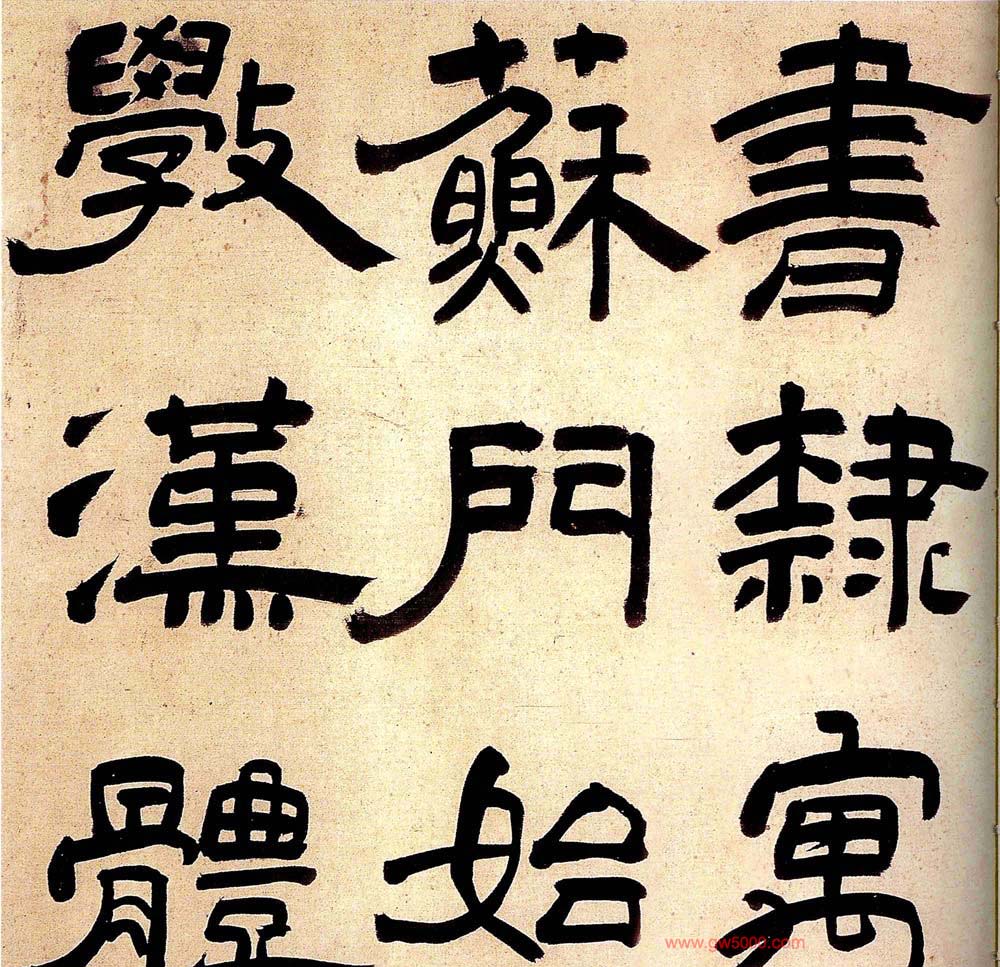 書隸寓
蘇門始
斅漢體
www.gw5000.com